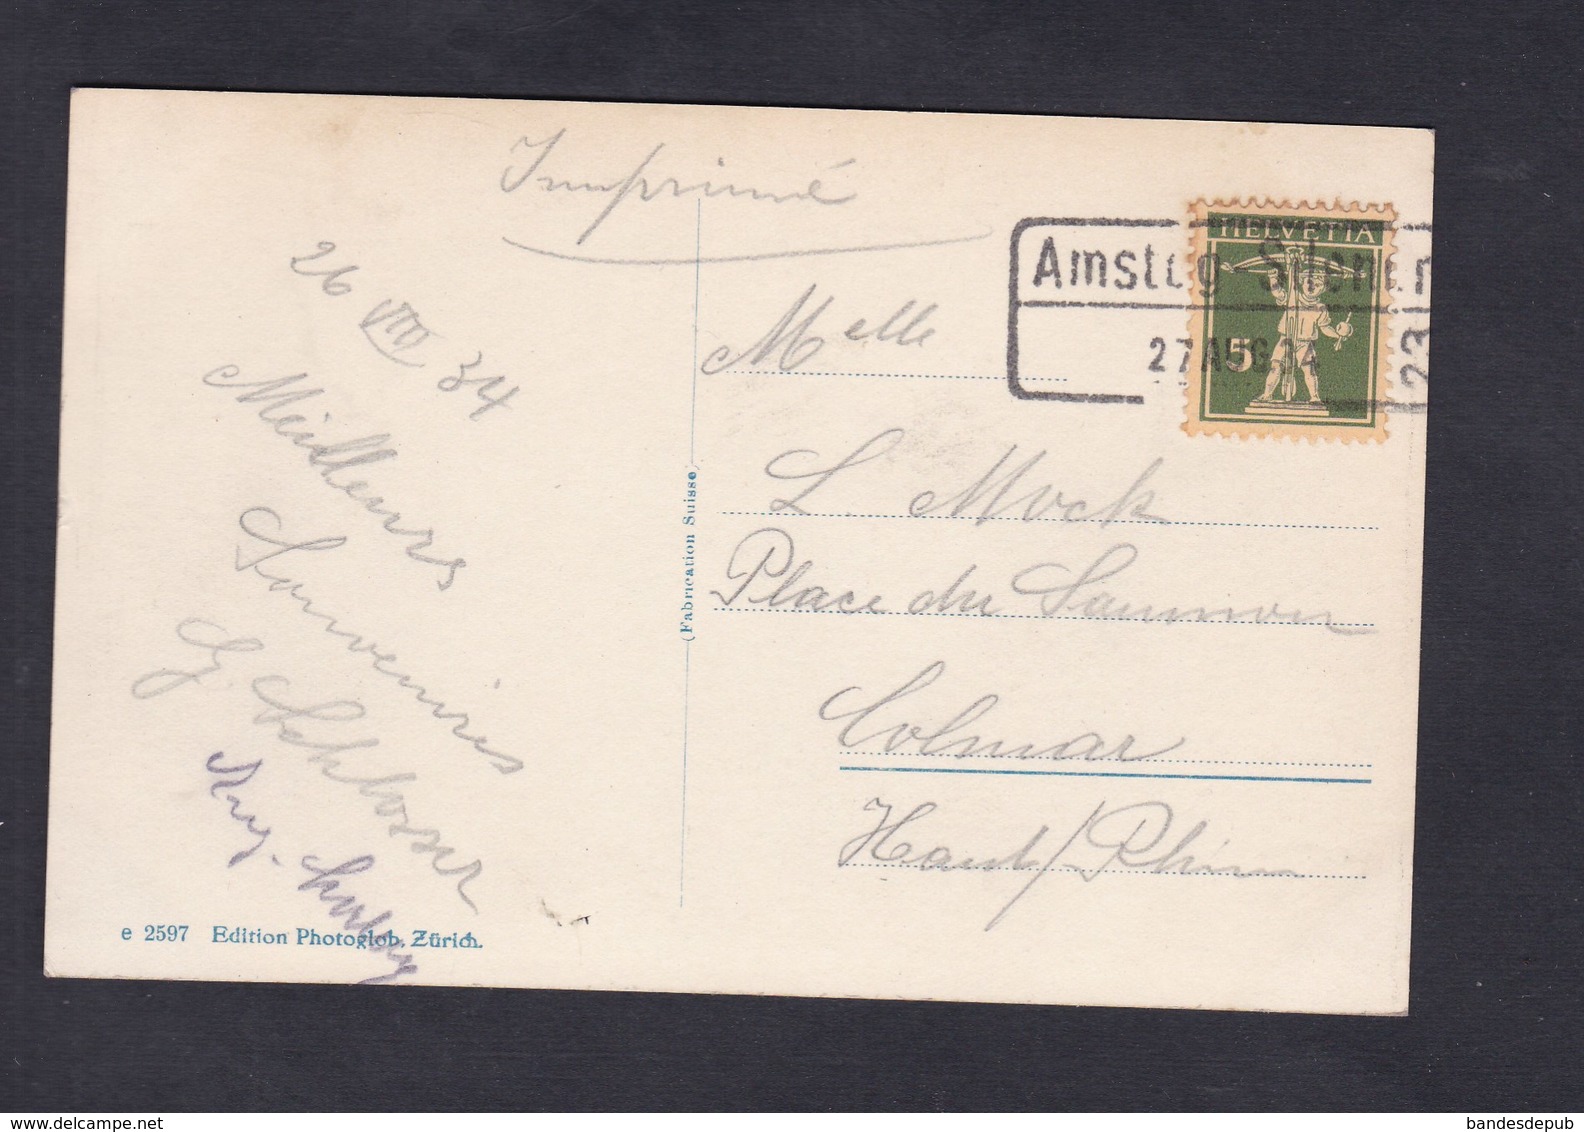 Imprimé
26 VIII 34
Meilleurs
Souvenirs
G. Schlosser
e 2597 Edition Photoglob, Zürich.
(Fabrication Suisse)
HELVETIA
5
Amsteg-Silenen
27 AUG. 34
23
Melle
L. Mock
Place du Saumon
Colmar
Haut/Rhin
bandesdepub